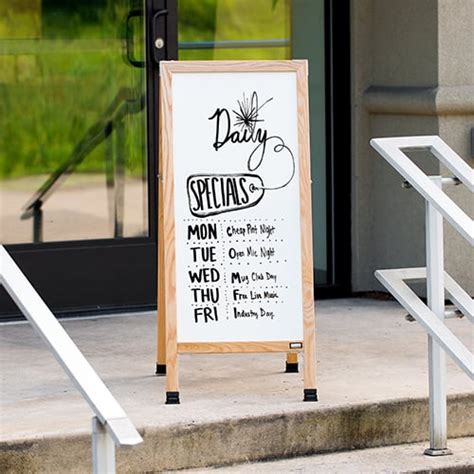 Daily
SPECIALS
MON Cheap Pint Night
TUE Open Mic Night
WED Mug Club Day
THU Free Live Music
FRI Industry Day.